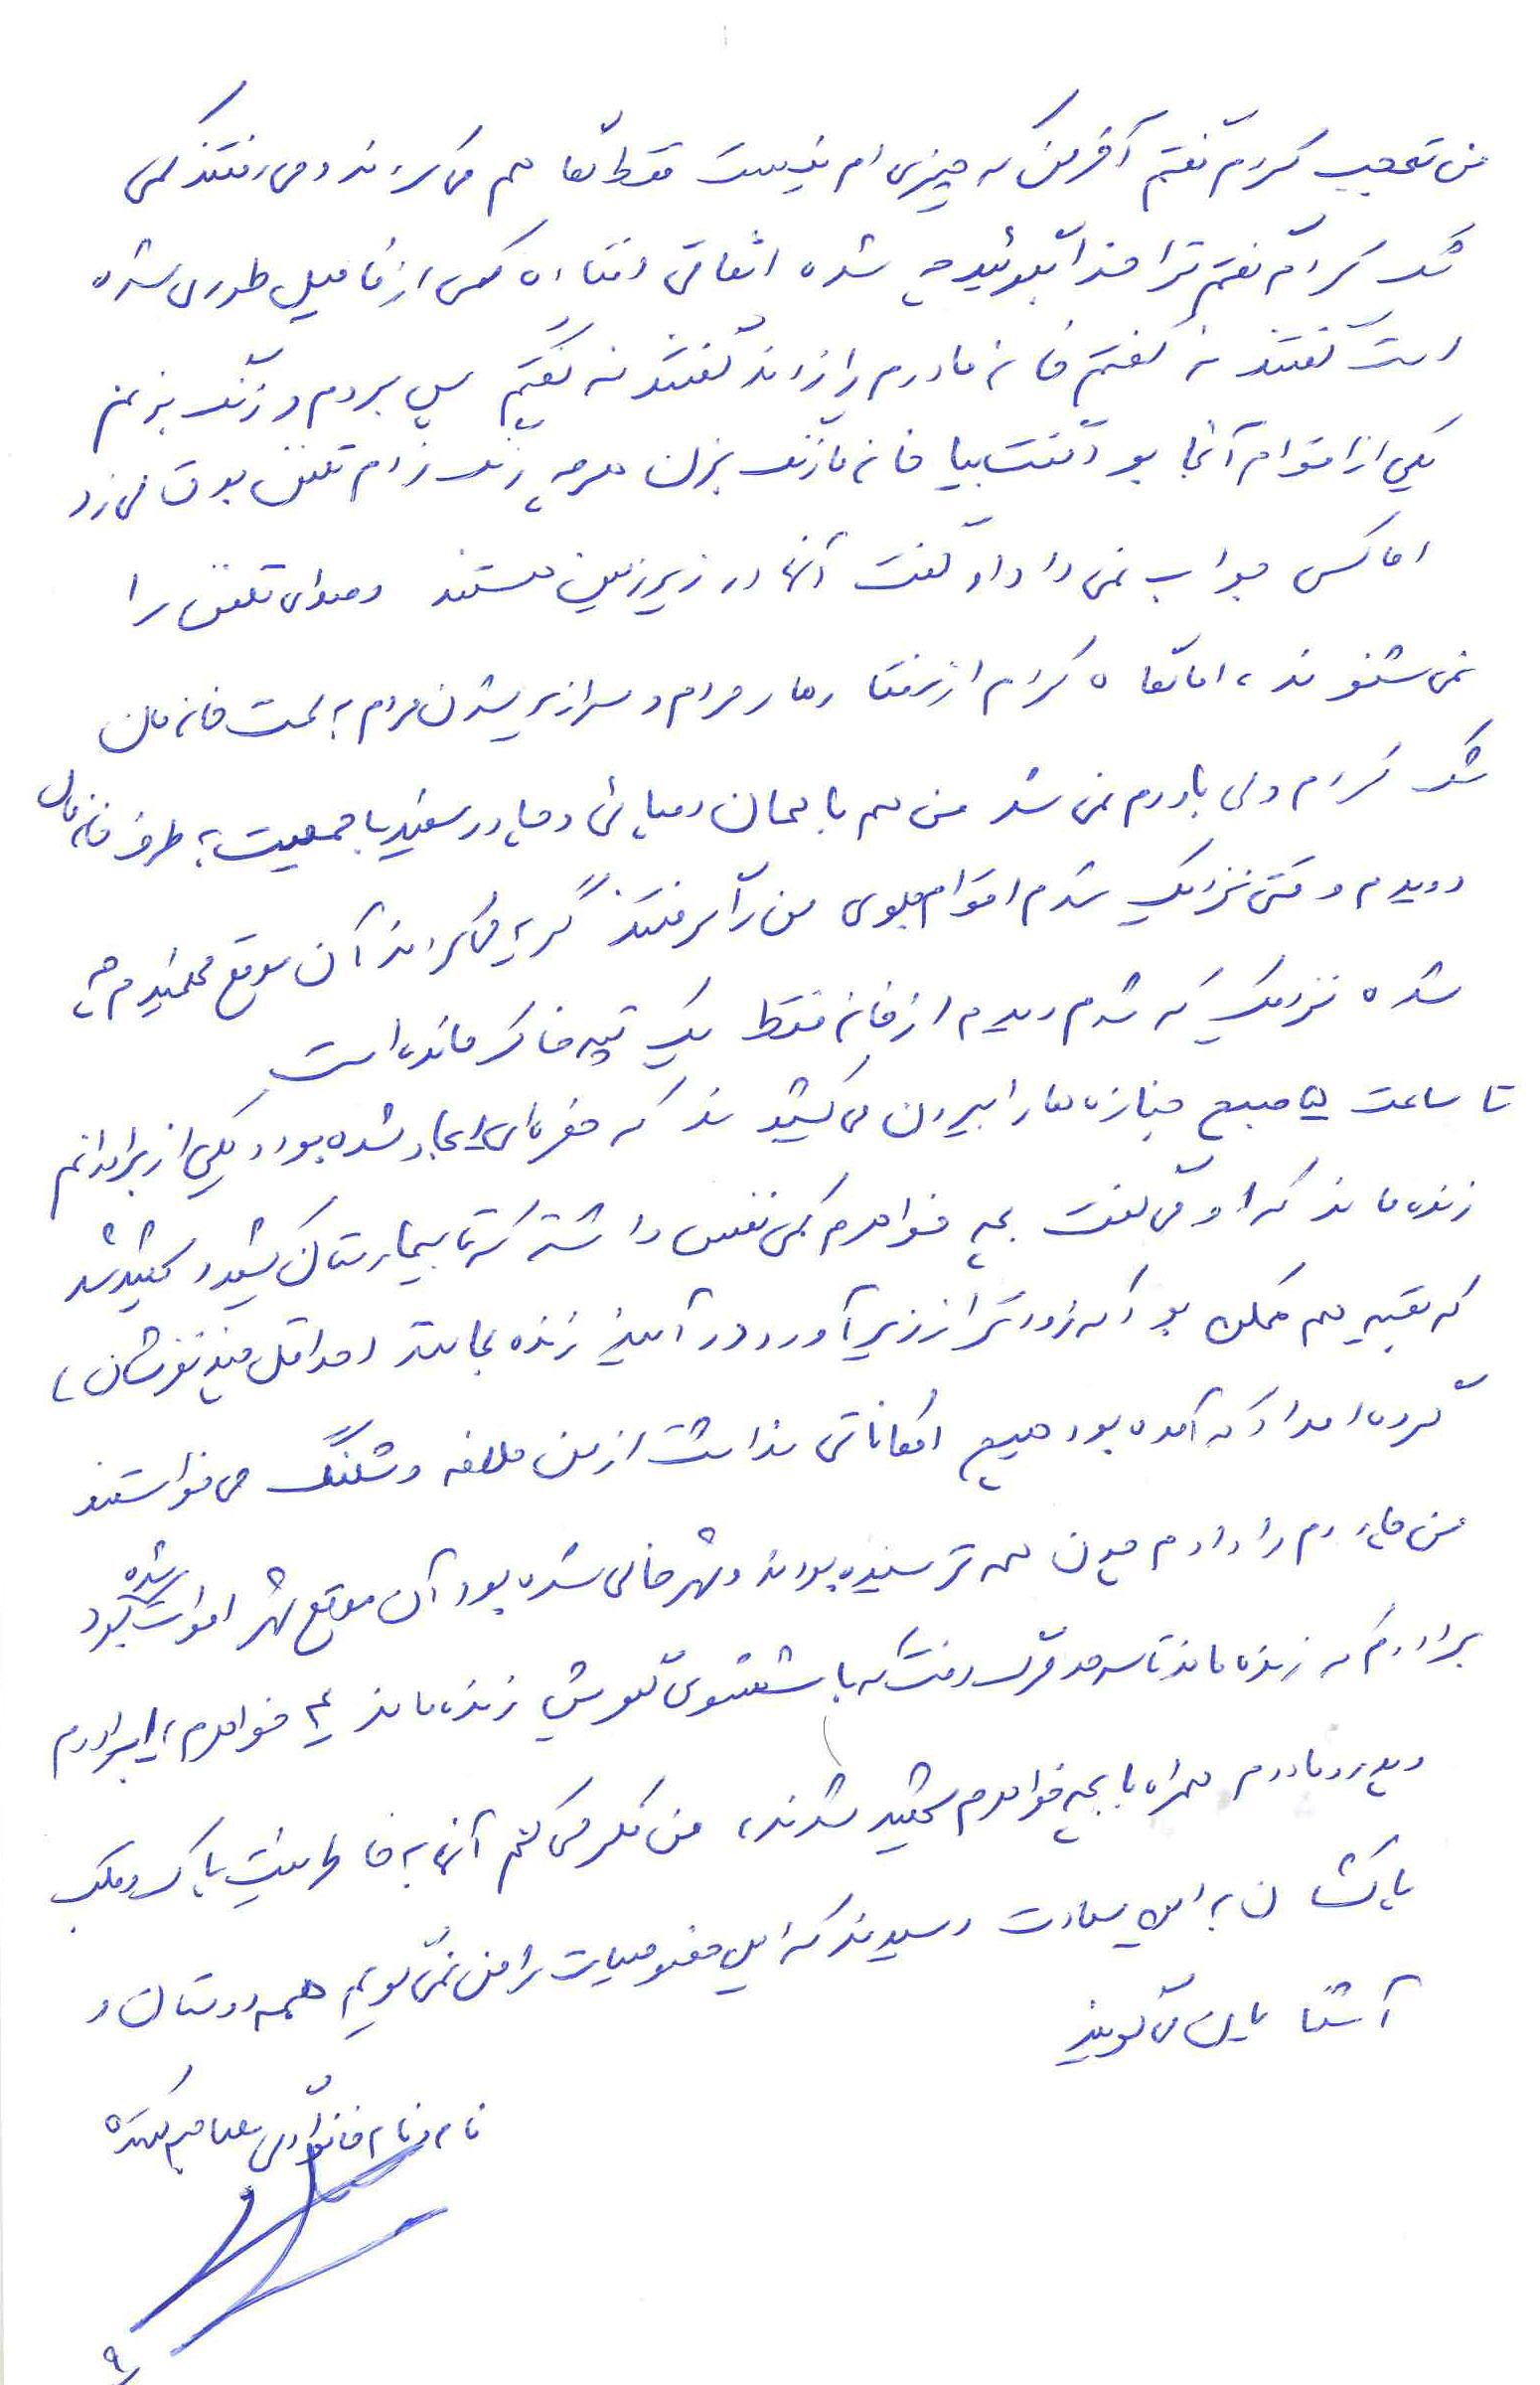 من تعجب کردم گفتم آخر من که چیزی ام نیست فقط نگاهم می کردند و می رفتند کمی
شک کردم گفتم ترا خدا بگوئید چه شده اتفاقی افتاده کسی از فامیل طوری شده
است گفتند نه گفتم خانه مادرم را زدند گفتند نه گفتم پس بروم و زنگ بزنم
یکی از اقوام آنجا بود گفت بیا خانه ما زنگ بزن هر چه زنگ زدم تلفن بوق می زد
اما کسی جواب نمی داد او گفت آنها در زیرزمین هستند و صدای تلفن را
نمی شنوند، اما نگاه کردم از رفتار مردم و سرازیر شدن مردم به سمت خانه مان
شک کردم ولی باورم نمی شد من هم با همان دمپائی و چادر سفید با جمعیت به طرف خانه مان
دویدم وقتی نزدیک شدم اقوام جلوی من را گرفتند گریه می کردند آن موقع فهمیدم چه
شده نزدیک که شدم دیدم از خانه فقط یک تپه خاک مانده است
تا ساعت ۵ صبح جنازه ها را بیرون می کشیدند که حفره ای ایجاد شده بود و یکی از برادرانم
زنده ماند که او می گفت بچه خواهرم کمی نفس داشته که تا بیمارستان کشید و شهید شد
که بقیه هم ممکن بود اگه زودتر از زیر آوار در آیند زنده بمانند حداقل چند نفرشان،
گروه امداد که آمده بود هیچ امکاناتی نداشت از من ملافه و شلنگ می خواستند
من چادرم را دادم چون همه ترسیده بودند و شهر خالی شده بود آن موقع شهر اموات شده بود
برادرم که زنده ماند تا سرحد مرگ رفت که با شستشوی گلویش زنده ماند بچه خواهرم، برادرم
و پدر و مادرم همراه با بچه خواهرم شهید شدند، من فکر می کنم آنها به خاطر نیت پاک و قلب
پاکشان به این سعادت رسیدند که این خصوصیات را من نمی گویم همه دوستان و
آشنایان می گویند
نام و نام خانوادگی مصاحبه کننده
۹